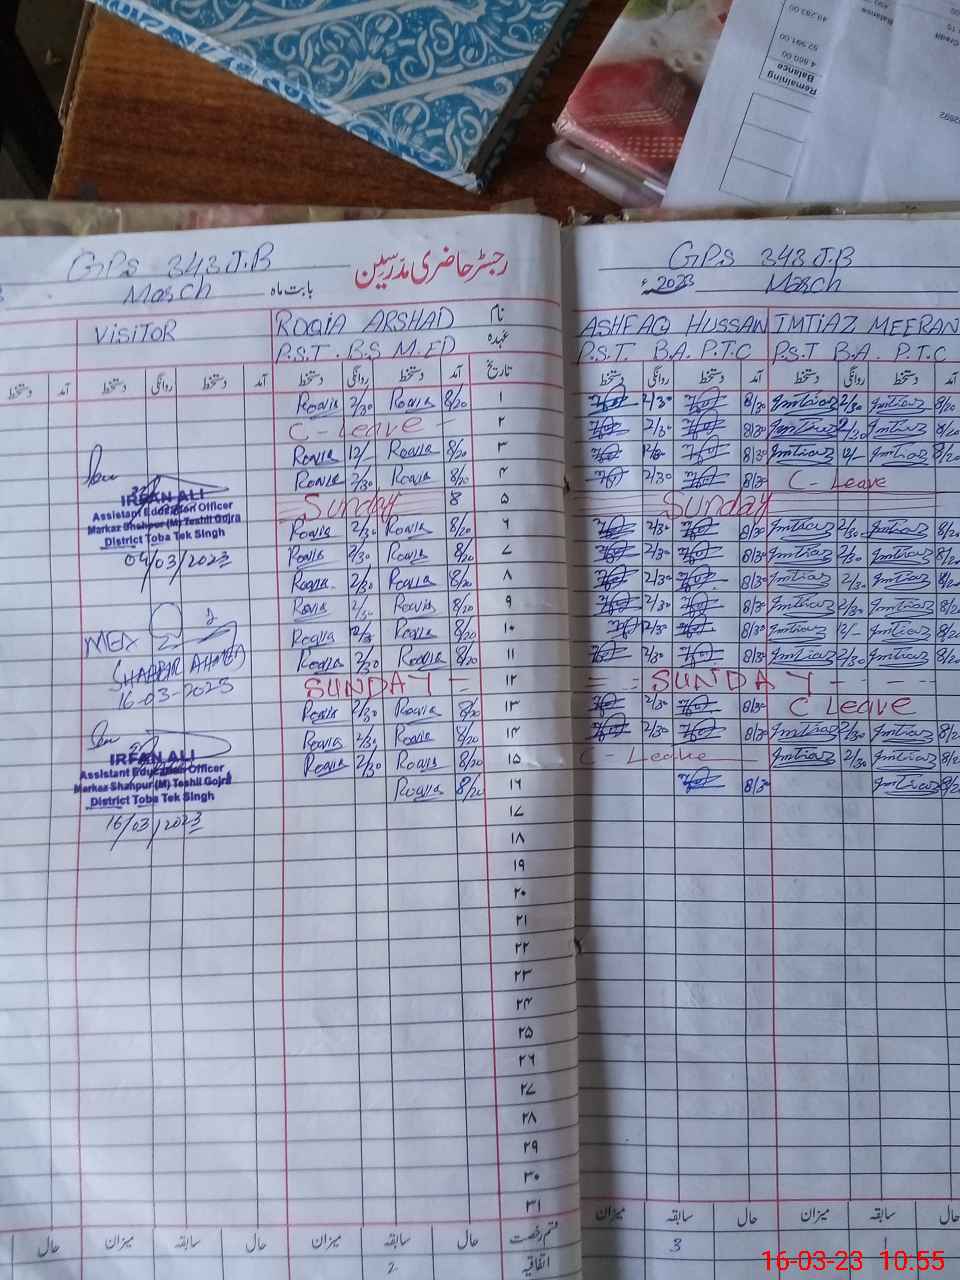 Remaining
Balance
4,860.00
52,391.00
49,283.00
Balance
Credit
GPS 343 J.B
رجسٹر حاضری مدرسین
March
بابت ماہ
VISITOR
ROQIA ARSHAD
نام
P.S.T. B.S M.ED
عہدہ
آمد دستخط روانگی دستخط آمد دستخط روانگی دستخط آمد تاریخ
Roqia 2/30 Roqia 8/20 ۱
C-Leave - ۲
Roqia 12/- Roqia 8/20 ۳
Roqia 2/30 Roqia 8/20 ۴
Sunday ۵
Roqia 2/30 Roqia 8/20 ۶
Roqia 2/30 Roqia 8/20 ۷
Roqia 2/30 Roqia 8/20 ۸
Roqia 2/30 Roqia 8/20 ۹
Roqia 12/- Roqia 8/20 ۱۰
Roqia 2/30 Roqia 8/20 ۱۱
SUNDAY - ۱۲
Roqia 2/30 Roqia 8/20 ۱۳
Roqia 2/30 Roqia 8/20 ۱۴
Roqia 2/30 Roqia 8/20 ۱۵
Roqia 8/20 ۱۶
۱۷
۱۸
۱۹
۲۰
۲۱
۲۲
۲۳
۲۴
۲۵
۲۶
۲۷
۲۸
۲۹
۳۰
۳۱
IRFAN ALI
Assistant Education Officer
Markaz Shahpur (M) Teshil Gojra
District Toba Tek Singh
04/03/2023
MEA
SHABBIR AHMED
16-03-2023
IRFAN ALI
Assistant Education Officer
Markaz Shahpur (M) Teshil Gojra
District Toba Tek Singh
16/03/2023
حال سابقہ میزان حال سابقہ میزان حال قسم رخصت
2 اتفاقیہ
GPS 343 J.B
2023ء March
ASHFAQ HUSSAN IMTIAZ MEERAN
P.S.T. B.A. P.T.C P.S.T B.A. P.T.C
دستخط روانگی دستخط آمد دستخط روانگی دستخط آمد
2/30 8/30 Imtiaz 2/30 Imtiaz 8/20
2/30 8/30 Imtiaz 2/30 Imtiaz 8/20
12/- 8/30 Imtiaz 12/- Imtiaz 8/20
2/30 8/30 C-Leave
Sunday
2/30 8/30 Imtiaz 2/30 Imtiaz 8/20
2/30 8/30 Imtiaz 2/30 Imtiaz 8/20
2/30 8/30 Imtiaz 2/30 Imtiaz 8/20
2/30 8/30 Imtiaz 2/30 Imtiaz 8/20
8/30 Imtiaz 12/- Imtiaz 8/20
2/30 8/30 Imtiaz 2/30 Imtiaz 8/20
SUNDAY
2/30 8/30 C Leave
2/30 8/30 Imtiaz 2/30 Imtiaz 8/20
C Leave Imtiaz 2/30 Imtiaz 8/20
8/30 Imtiaz 8/20
میزان سابقہ حال میزان سابقہ حال
3 1
16-03-23 10.55